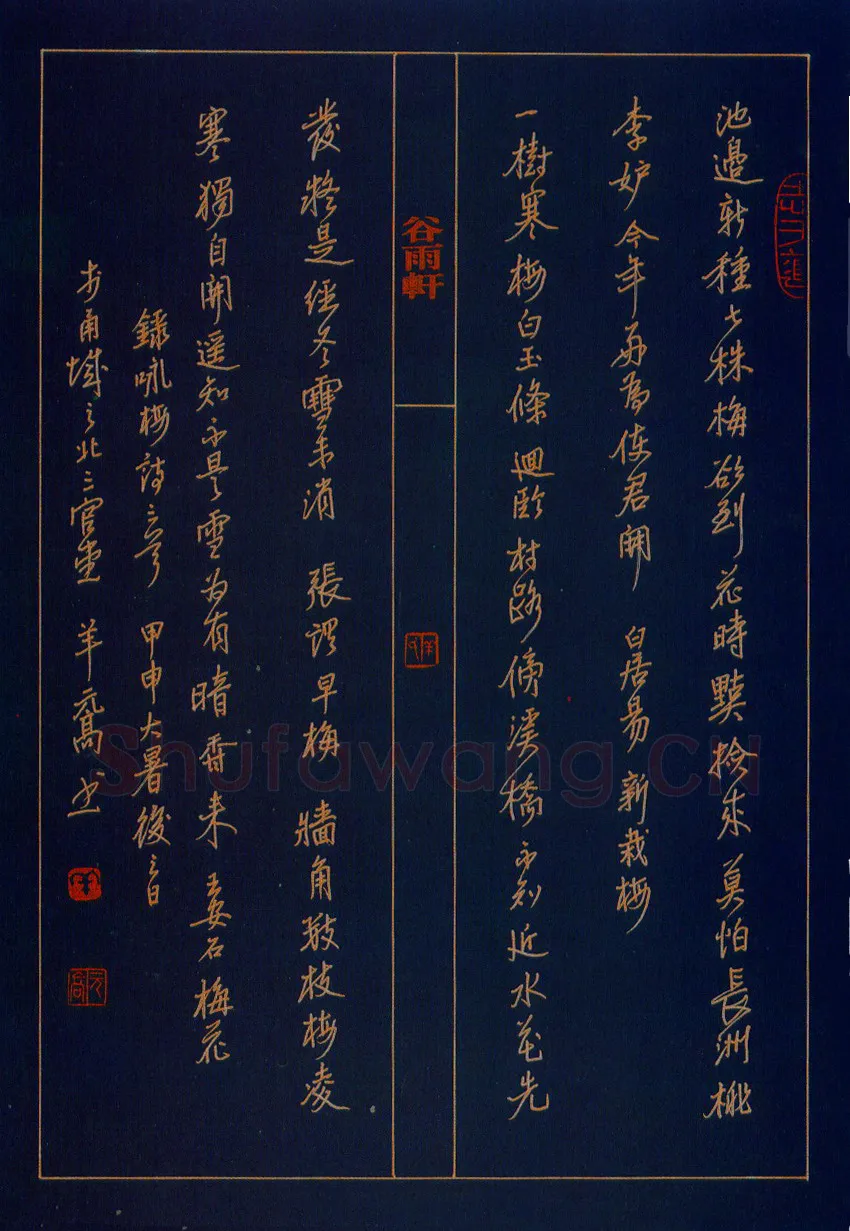 池邉新種七株梅欲到花時點撿來莫怕長洲桃
李妒今年好為使君開 白居易 新栽梅
一樹寒梅白玉條迥臨村路傍溪橋不知近水花先
谷雨軒
發疑是經冬雪未消 張謂早梅 牆角數枝梅凌
寒獨自開遥知不是雪為有暗香来 王安石梅花
録咏梅詩三首 甲申大暑後三日
於甬城之北三官堂 羊元喬書
Shufawang.CN